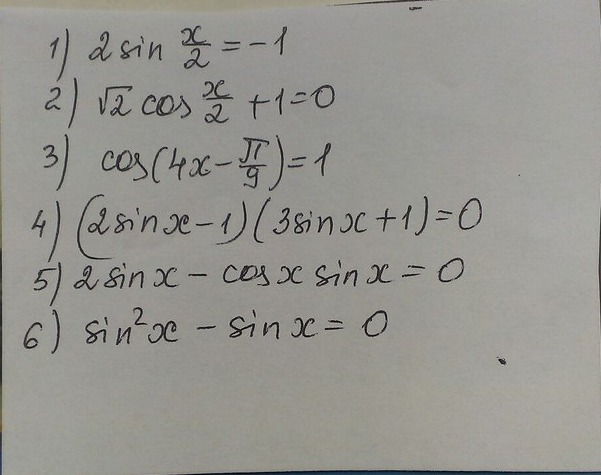 1) 2 sin x/2 = -1
2) √2 cos x/2 + 1 = 0
3) cos(4x - π/9) = 1
4) (2 sin x - 1)(3 sin x + 1) = 0
5) 2 sin x - cos x sin x = 0
6) sin²x - sin x = 0